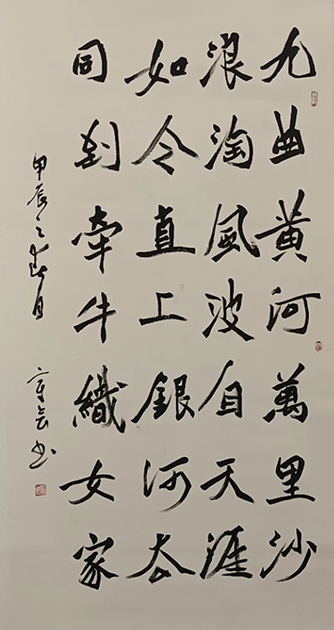 九曲黃河萬里沙
浪淘風波自天涯
如今直上銀河去
同到牽牛織女家
甲辰之月
书